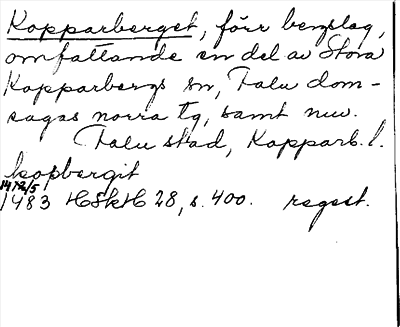 Kopparberget, förr bergslag,
omfattande en del av Stora
Kopparbergs sn, Falu dom-
sagas norra tg, samt nuv.
Falu stad, Kopparb. l.
kopbergit
14 12/5
1483 HSkH 28, s. 400. regest.